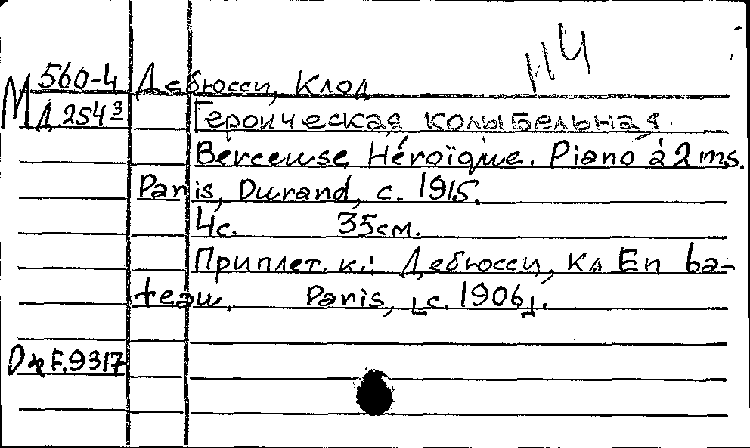 Н4
М 560-4 Дебюсси, Клод
Д 254³
Героическая колыбельная
Berceuse Héroïque. Piano à 2 ms.
Paris, Durand, c. 1915.
4с. 35см.
Приплет. к.: Дебюсси, Кл En ba-
teau. Paris, [c. 1906].
F.9317